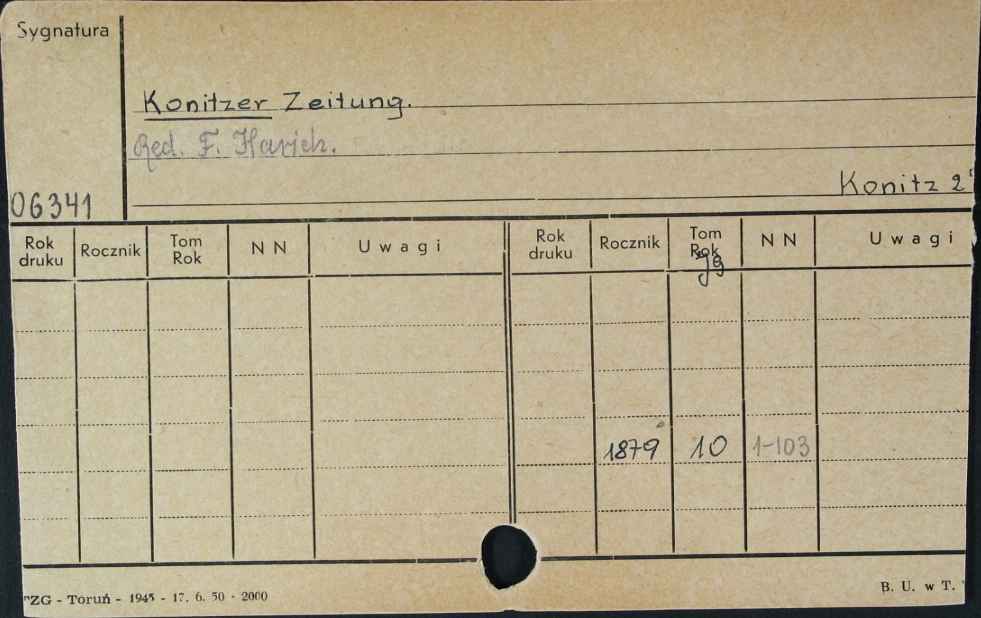 Sygnatura
Konitzer Zeitung.
Red. F. Harich.
Konitz 2°
06341
Rok druku Rocznik Tom Rok NN Uwagi Rok druku Rocznik Tom Rok NN Uwagi
jg
1879 10 1-103
"ZG - Toruń - 1945 - 17. 6. 50 - 2000
B. U. w T.